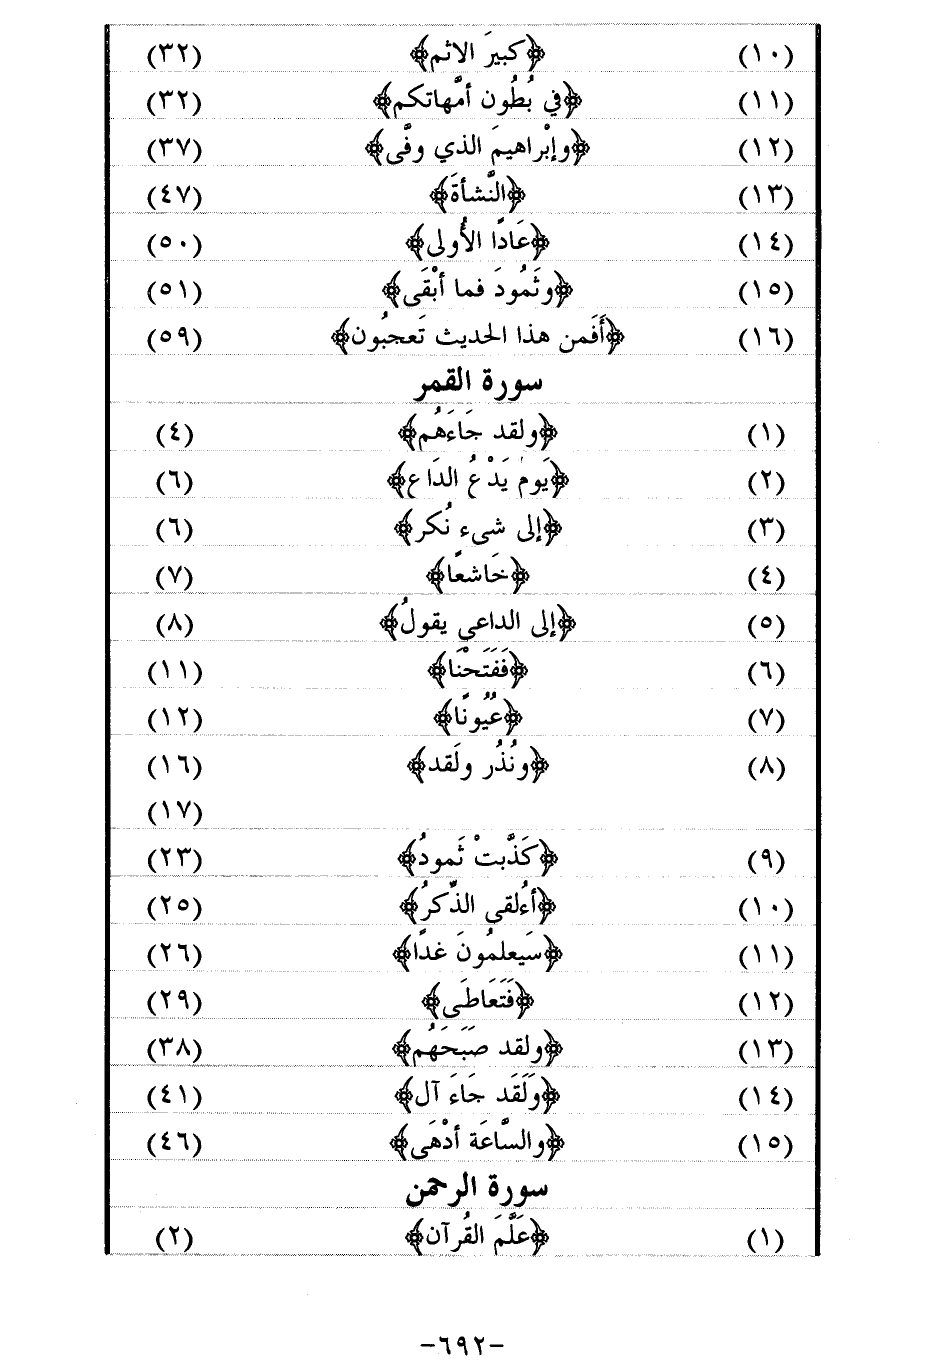 (١٠) ﴿كبيرَ الاثم﴾ (٣٢)
(١١) ﴿في بُطُون أمَّهاتكم﴾ (٣٢)
(١٢) ﴿وإبْراهيمَ الذي وفَّى﴾ (٣٧)
(١٣) ﴿النَّشأةَ﴾ (٤٧)
(١٤) ﴿عَادًا الأُولى﴾ (٥٠)
(١٥) ﴿وثَمُودَ فما أبْقَى﴾ (٥١)
(١٦) ﴿أَفَمن هذا الحديث تَعجبُون﴾ (٥٩)
سورة القمر
(١) ﴿ولقد جَاءَهُم﴾ (٤)
(٢) ﴿يَومَ يَدْعُ الدَاع﴾ (٦)
(٣) ﴿إلى شىء نُكر﴾ (٦)
(٤) ﴿خَاشعًا﴾ (٧)
(٥) ﴿إلى الداعي يقولُ﴾ (٨)
(٦) ﴿فَفَتَحْنَا﴾ (١١)
(٧) ﴿عُيُونًا﴾ (١٢)
(٨) ﴿ونُذُر ولَقد﴾ (١٦)
(١٧)
(٩) ﴿كَذَّبتْ ثَمودُ﴾ (٢٣)
(١٠) ﴿أءُلقى الذِّكرُ﴾ (٢٥)
(١١) ﴿سَيعلمُونَ غدًا﴾ (٢٦)
(١٢) ﴿فَتَعَاطَى﴾ (٢٩)
(١٣) ﴿ولقد صَبَحَهُم﴾ (٣٨)
(١٤) ﴿وَلَقَد جَاءَ آل﴾ (٤١)
(١٥) ﴿والسَّاعَة أدْهَى﴾ (٤٦)
سورة الرحمن
(١) ﴿عَلَّمَ القُرآن﴾ (٢)
-٦٩٢-